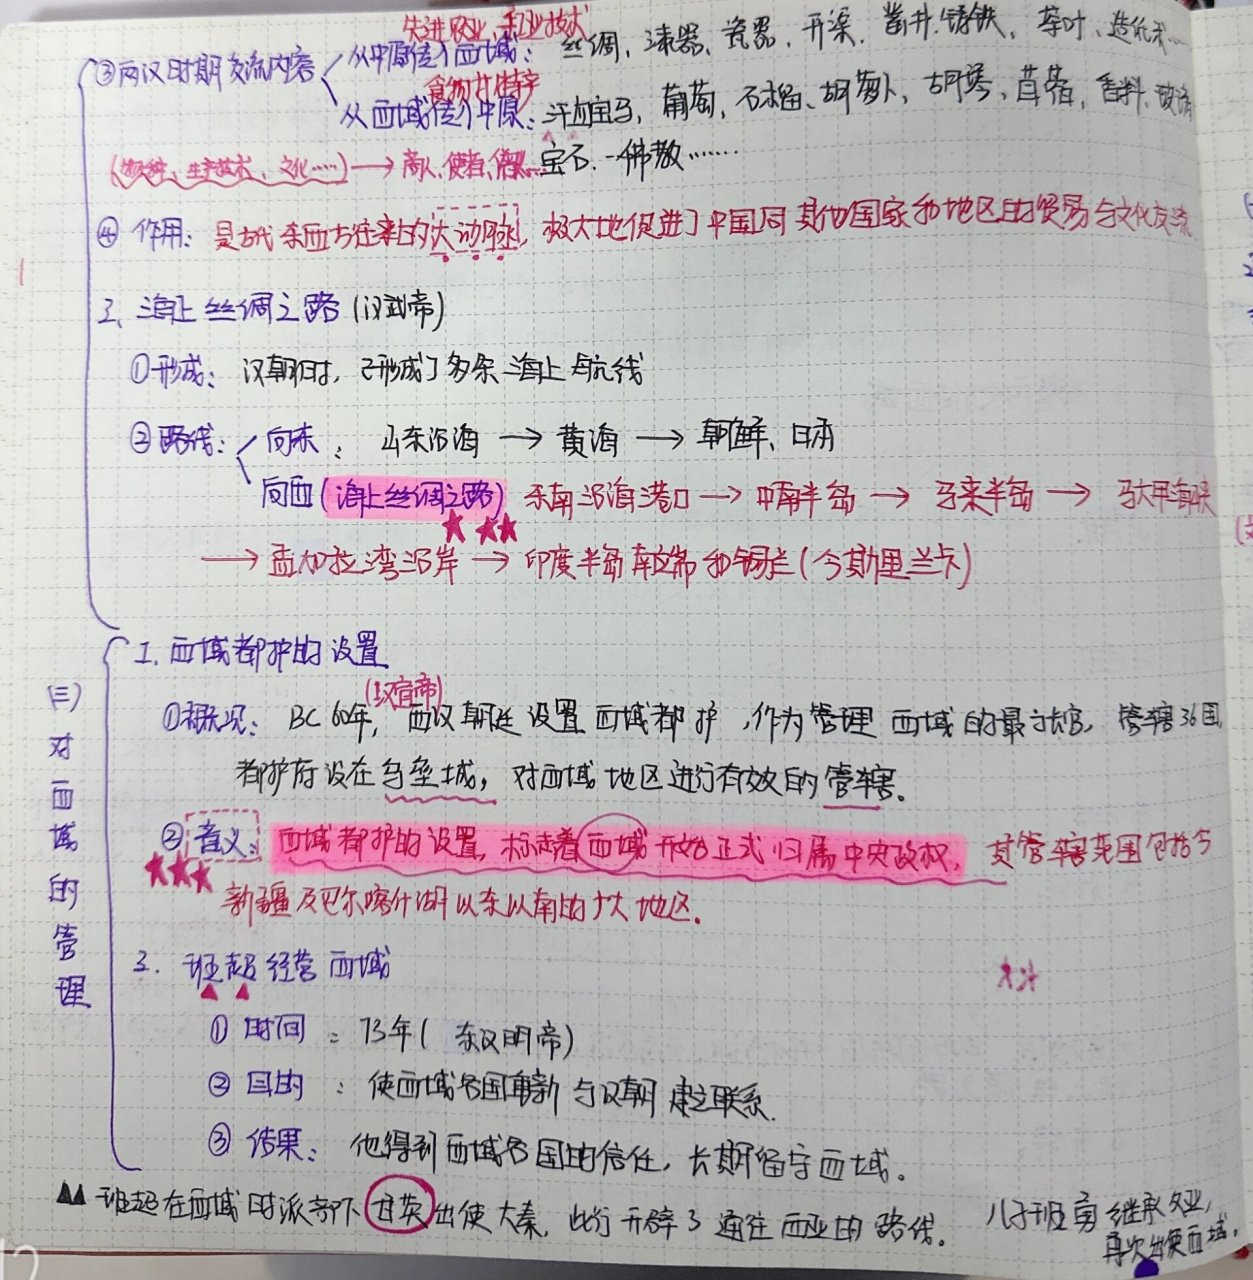 先进农业、手工业技术
③两汉时期交流内容 从中原传入西域：丝绸，漆器，瓷器，开渠，凿井，铸铁，茶叶、造纸术…
食物 特产
从西域传入中原：汗血宝马，葡萄，石榴、胡萝卜，胡琴、苜蓿，香料、玻璃
宝石…佛教……
(物种、生产技术、文化……) → 商人、使者、僧侣…
④ 作用：是古代东西方往来的大动脉，极大地促进了中国同其他国家和地区的贸易与文化交流
2、海上丝绸之路 (汉武帝)
①形成：汉朝时，已形成了多条海上航线
②路线：向东：山东沿海 → 黄海 → 朝鲜、日本
向西(海上丝绸之路) 东南沿海港口 → 中南半岛 → 马来半岛 → 马六甲海峡
→ 孟加拉湾沿岸 → 印度半岛南端和锡兰(今斯里兰卡)
(三)对西域的管理
1. 西域都护的设置
(汉宣帝)
①概况：BC 60年，西汉朝廷设置西域都护，作为管理西域的最高长官，管辖36国，
都护府设在乌垒城，对西域地区进行有效的管辖。
②意义：西域都护的设置，标志着西域开始正式归属中央政权，其管辖范围包括今
新疆及巴尔喀什湖以东以南的广大地区。
2. 班超经营西域
① 时间：73年(东汉明帝)
② 目的：使西域各国重新与汉朝建立联系.
③ 结果：他得到西域各国的信任，长期留守西域。
班超在西域时派部下甘英出使大秦，此行开辟了通往西亚的路线。
儿子班勇继承父业，
再次出使西域。